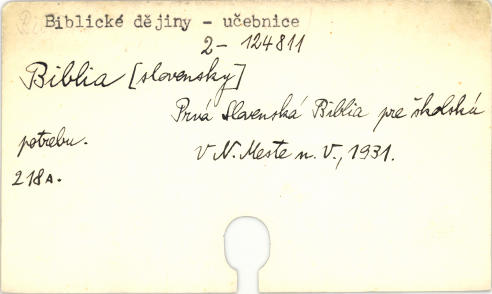 Biblické dějiny - učebnice
2- 124811
Biblia [slovensky]
Prvá Slovenská Biblia pre školskú
potrebu.
V N. Meste n. V., 1931.
218 A.